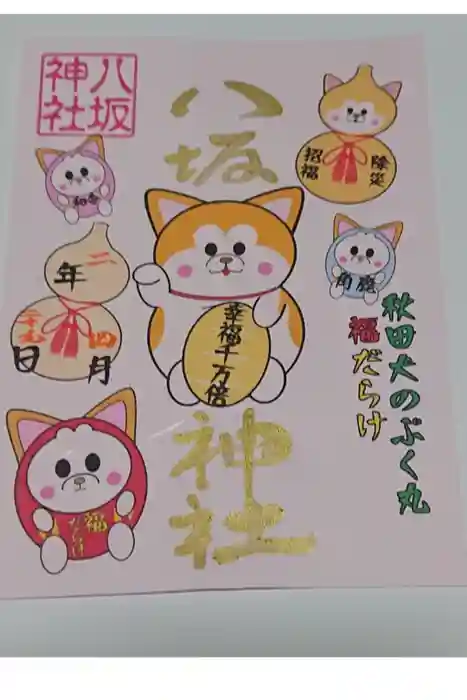 八坂
神社
八坂
神社
除災
招福
鹿角
二年
四月
日
幸福千万倍
秋田犬のぷく丸
福だらけ
福
だらけ